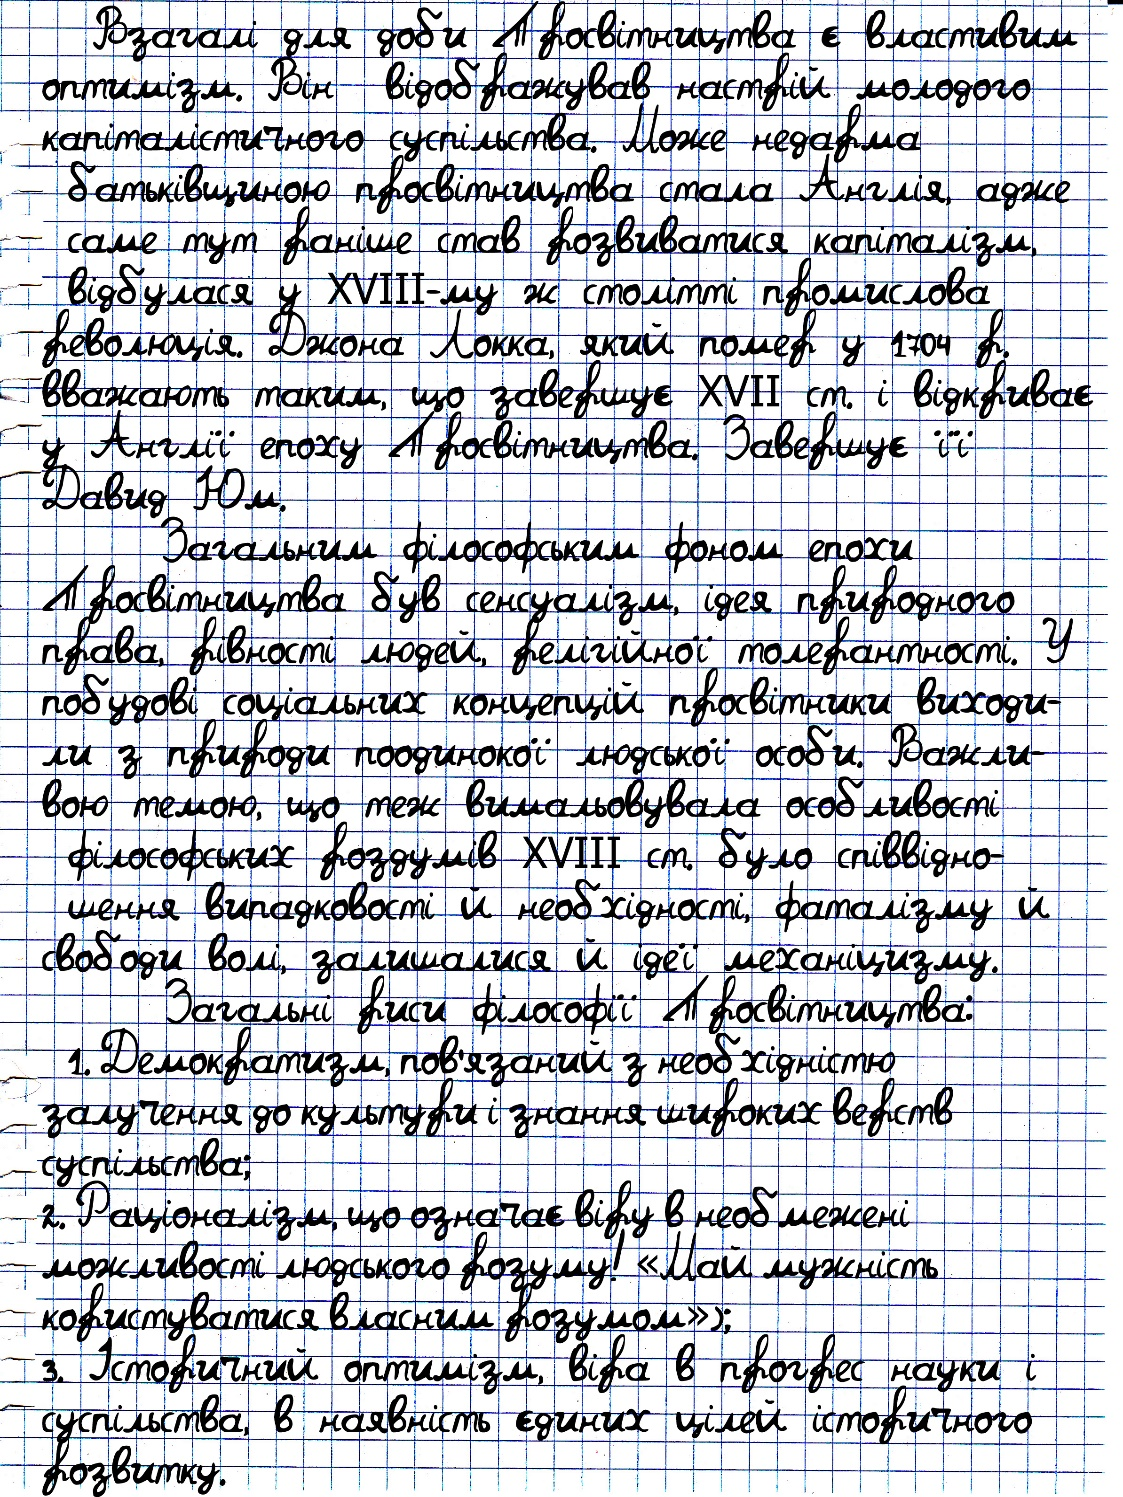 Взагалі для доби Просвітництва є властивим
оптимізм. Він відображував настрій молодого
капіталістичного суспільства. Може недарма
батьківщиною просвітництва стала Англія, адже
саме тут раніше став розвиватися капіталізм,
відбулася у XVIII-му ж столітті промислова
революція. Джона Локка, який помер у 1704 р.
вважають таким, що завершує XVII ст. і відкриває
у Англії епоху Просвітництва. Завершує її
Давид Юм.
Загальним філософським фоном епохи
Просвітництва був сенсуалізм, ідея природного
права, рівності людей, релігійної толерантності. У
побудові соціальних концепцій просвітники виходи-
ли з природи поодинокої людської особи. Важли-
вою темою, що теж вимальовувала особливості
філософських роздумів XVIII ст. було співвідно-
шення випадковості й необхідності, фаталізму й
свободи волі, залишалися й ідеї механіцизму.
Загальні риси філософії Просвітництва:
1. Демократизм, пов'язаний з необхідністю
залучення до культури і знання широких верств
суспільства;
2. Раціоналізм, що означає віру в необмежені
можливості людського розуму! «Май мужність
користуватися власним розумом»);
3. Історичний оптимізм, віра в прогрес науки і
суспільства, в наявність єдиних цілей історичного
розвитку.